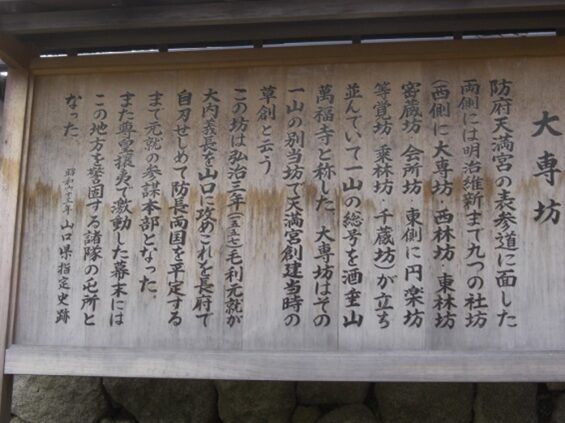 大専坊
防府天満宮の表参道に面した
両側には明治維新まで九つの社坊
(西側に大専坊・西林坊・東林坊
密蔵坊・会所坊・東側に円楽坊
等覚坊・乗林坊・千蔵坊)が立ち
並んでいて一山の総号を酒垂山
萬福寺と称した。大専坊はその
一山の別当坊で天満宮創建当時の
草創と云う
この坊は弘治三年(一五五七)毛利元就が
大内義長を山口に攻めこれを長府で
自刃せしめて防長両国を平定する
まで元就の参謀本部となった。
また尊皇攘夷で激動した幕末には
この地方を警固する諸隊の屯所と
なった。
昭和六十三年 山口県指定史跡